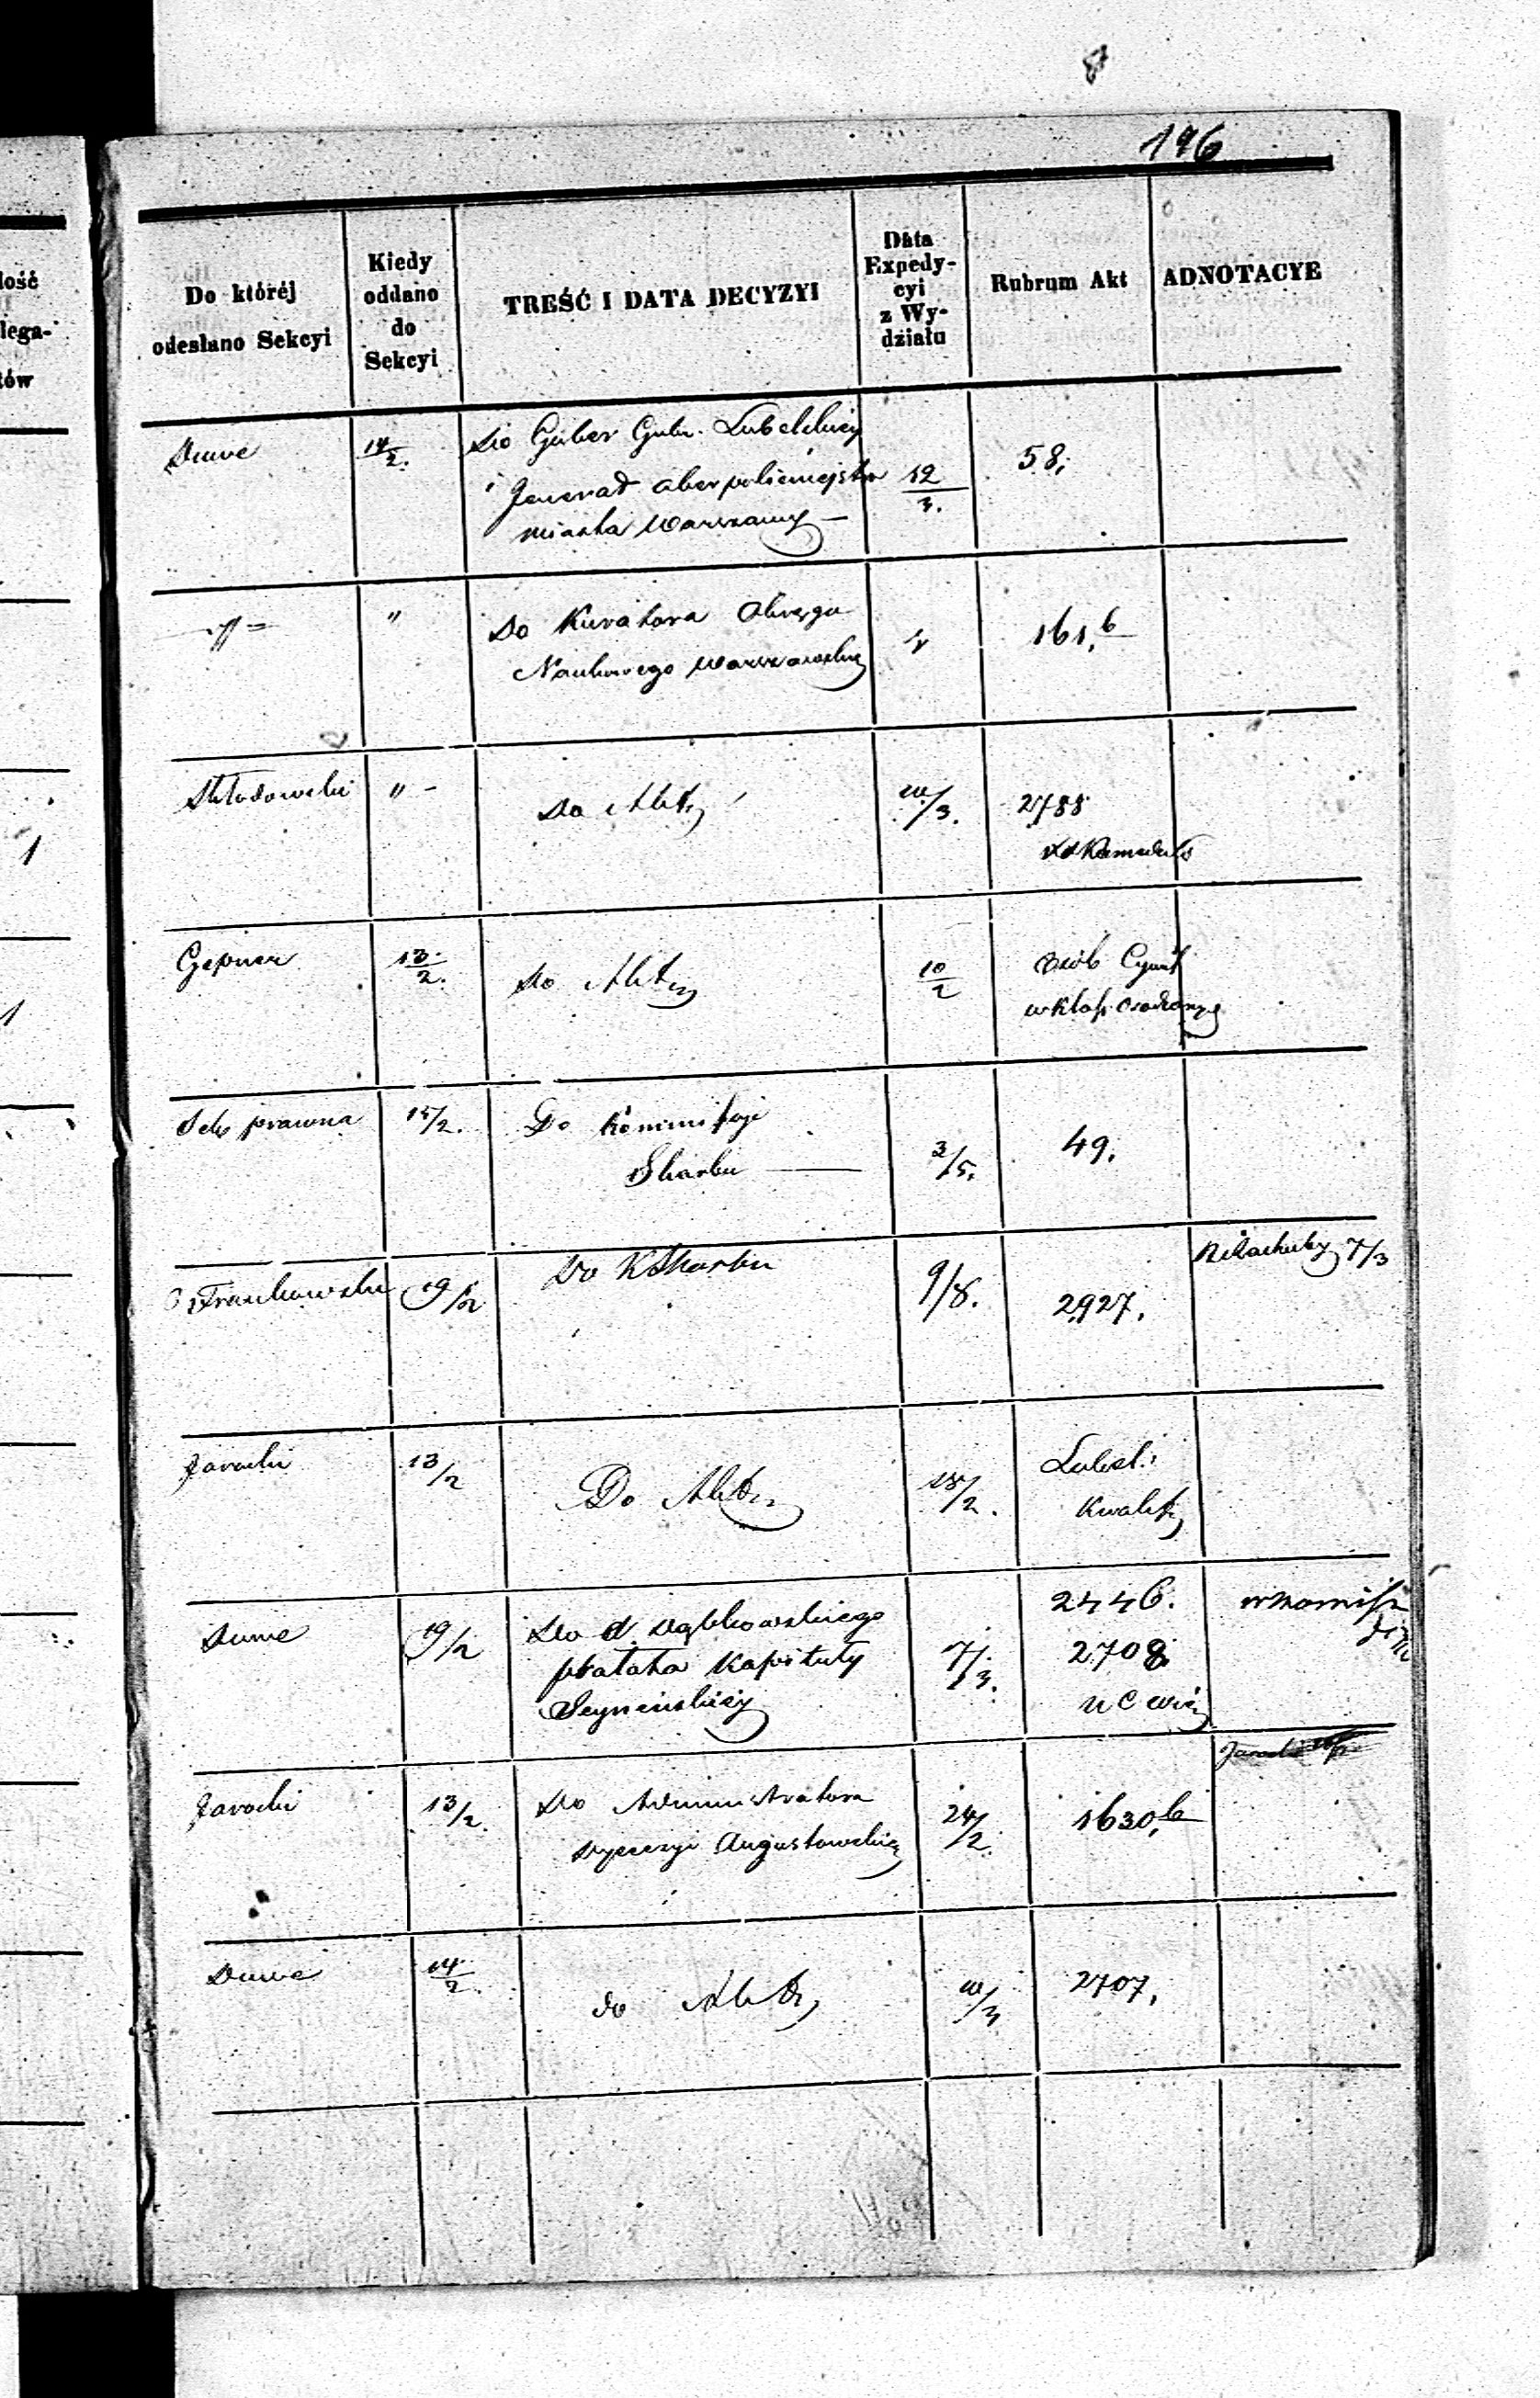 196
lość
lega-
tów
1
1
Do któréj
odesłano Sekcyi
Kiedy
oddano
do
Sekcyi
TREŚĆ I DATA DECYZYI
Data
Expedy-
cyi
z Wy-
działu
Rubrum Akt
ADNOTACYE
14/2.
Do Guber Gub. Lubelskiej
i Jenerał Oberpolicmajstra
miasta Warszawy —
12/3.
58.
"
Do Kuratora Okręgu
Naukowego Warszawskie
161.b
Skłodowski
" -
Do Akt
/3.
2788
Gepner
13/2.
Do Akt
10/2
Osób Cywil
Sek prawna
15/2.
Do Kommissyi
Skarbu —
3/5.
49.
Frankowski
19/2
Do K Skarbu
9/8.
2927.
7/3
Jarocki
13/2
Do Akt
18/2.
Lubel.
Kwalif
19/2
Do d. Dąbkowskiego
prałata Kapituły
Seyneńskiéj
7/3.
2446.
2708.
Jarocki
13/2.
Do Administratora
Dyecezyi Augustowskié
24/2.
1630.b
14/2
do Akt
/3
2707.